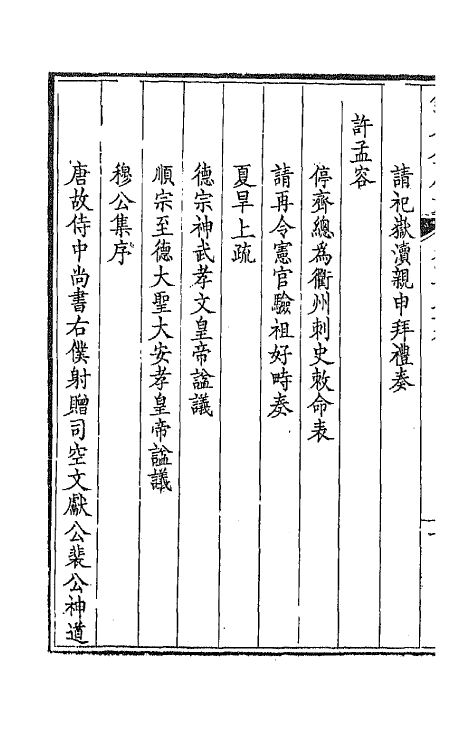 請祀嶽瀆親申拜禮奏
許孟容
停齊總爲衢州刺史敕命表
請再令憲官驗祖好時奏
夏旱上疏
德宗神武孝文皇帝諡議
順宗至德大聖大安孝皇帝諡議
穆公集序
唐故侍中尚書右僕射贈司空文獻公裴公神道